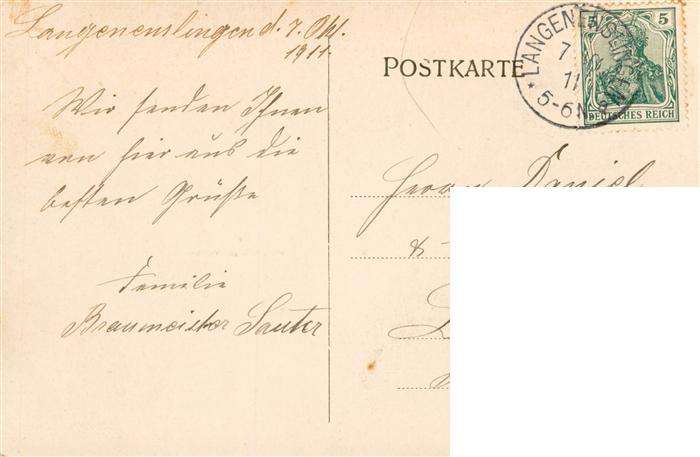 Langenenslingen d. 7. Okt.
1911.
Wir senden Ihnen
von hier aus die
besten Grüße
Familie
Braumeister Sauter
POSTKARTE
5
DEUTSCHES REICH
* LANGENENSLINGEN
7
11
5-6N
Herrn Daniel